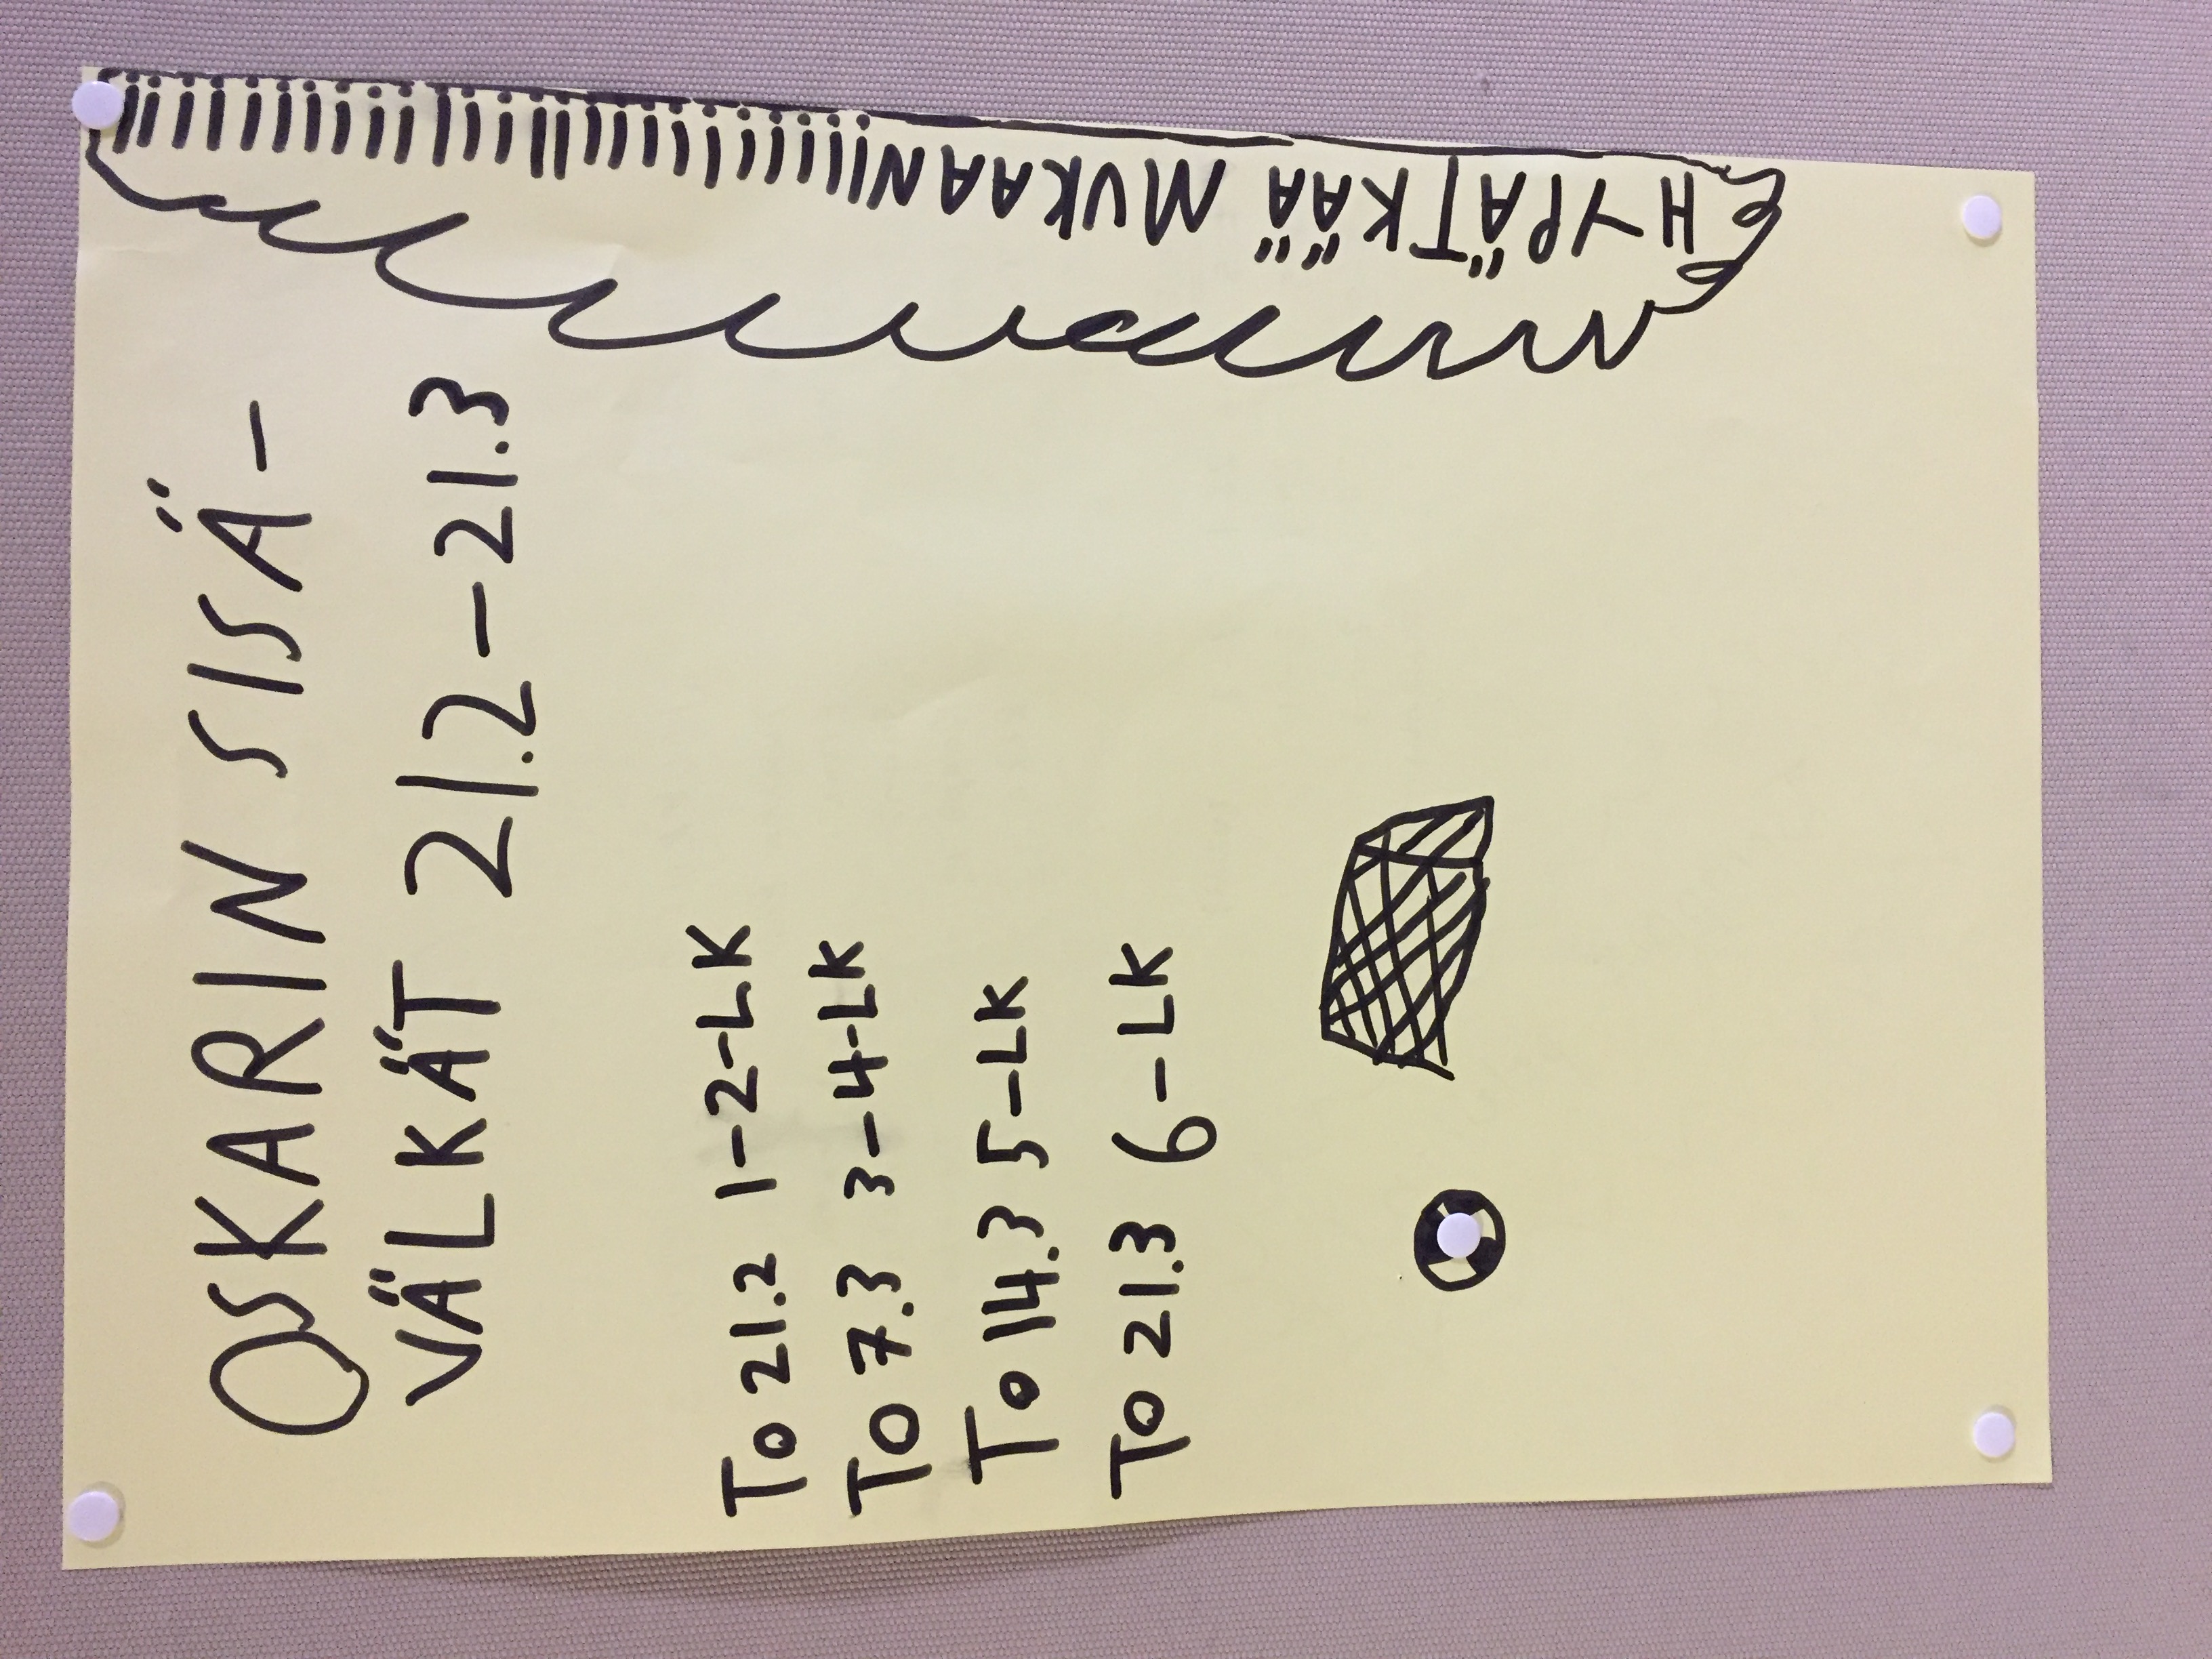 OSKARIN SISÄ-
VÄLKÄT 21.2-21.3
To 21.2 1-2-LK
To 7.3 3-4-LK
To 14.3 5-LK
To 21.3 6-LK
HYPÄTKÄÄ MUKAAN!!!!!!!!!!!!!!!!!!!!!!!!!!!!!!!!!!